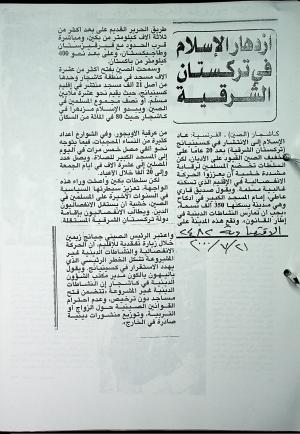 ازدهار الإسلام
في تركستان
الشرقية
كاشجار (الصين) ـ الفرنسية: عاد
الإسلام إلى الانتشار في كسينيانج
(تركستان الشرقية) بعد ٢٠ عاما على
تخفيف الصين القيود على الأديان لكن
سلطات تخضع المسلمين لرقابة
مشددة خشية أن يعززوا الحركة
الانفصالية في الإقليم الذي تسكنه
غالبية مسلمة. ويقول صديق قاري
حاجي، إمام المسجد الكبير في
وهي مدينة يسكنها ٣٥٠ ألف نسمة
يجب أن تمارس النشاطات الدينية في
إطار القانون». وتقع هذه المدينة على
طريق الحرير القديم على بعد أكثر من
ثلاثة آلاف كيلومتر من بكين، ومباشرة
قرب الحدود مع قيرغيزستان
وطاجيكستان، وعلى بعد نحو ٤٠٠
كيلومتر من باكستان.
وسمحت الصين بفتح أكثر من عشرة
آلاف مسجد في منطقة كاشجار وحدها
من أصل ٢١ ألف مسجد منتشر في إقليم
كسينيانج، حيث يقيم نحو عشرة ملايين
مسلم، أو نصف مجموع المسلمين في
الصين. ويبدو الإسلام مزدهرا في
كاشجار حيث ٨٠ في المائة من السكان
من عرقية الأويجور. وفي الشوارع أعداد
كبيرة من النساء المحجبات، فيما يتوجه
نحو ألفي مصل خمس مرات في اليوم
إلى المسجد الكبير للصلاة. ويصل عدد
المصلين إلى عشرة آلاف في أيام الجمعة
وإلى ٢٠ ألفا خلال الأعياد.
لكن سلطات بكين وأصلت وراء هذه
الواجهة، تعزيز سيطرتها السياسية
في السنوات الأخيرة على المسلمين في
الصين، خشية أن يستغل الانفصاليون
الدين. ويطالب الانفصاليون بإقامة
دولة تركستان الشرقية المستقلة.
واعتبر الرئيس الصيني جيانج زيمين
خلال زيارة تفقدية للإقليم، أن الحركة
الانفصالية والنشاطات الدينية غير
المشروعة تشكل الخطر الرئيسي الذي
يهدد الاستقرار في كسينيانج. ويقول
مدير مكتب الشؤون
الدينية في كاشجار إن النشاطات
الدينية غير المشروعة «تتضمن فتح
مساجد دون ترخيص، وعدم احترام
القوانين الصينية حول الزواج أو
التربية، وتوزيع منشورات دينية
صادرة في الخارج».
٢٠٠٠/٧/٢١